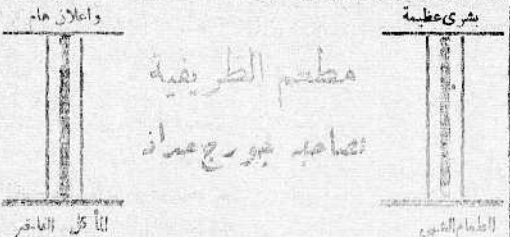 بشرى عظيمة
واعلان هام
مطعم الظريفية
لصاحبه جورج
الطعام الشهي
المأكل الفاخر